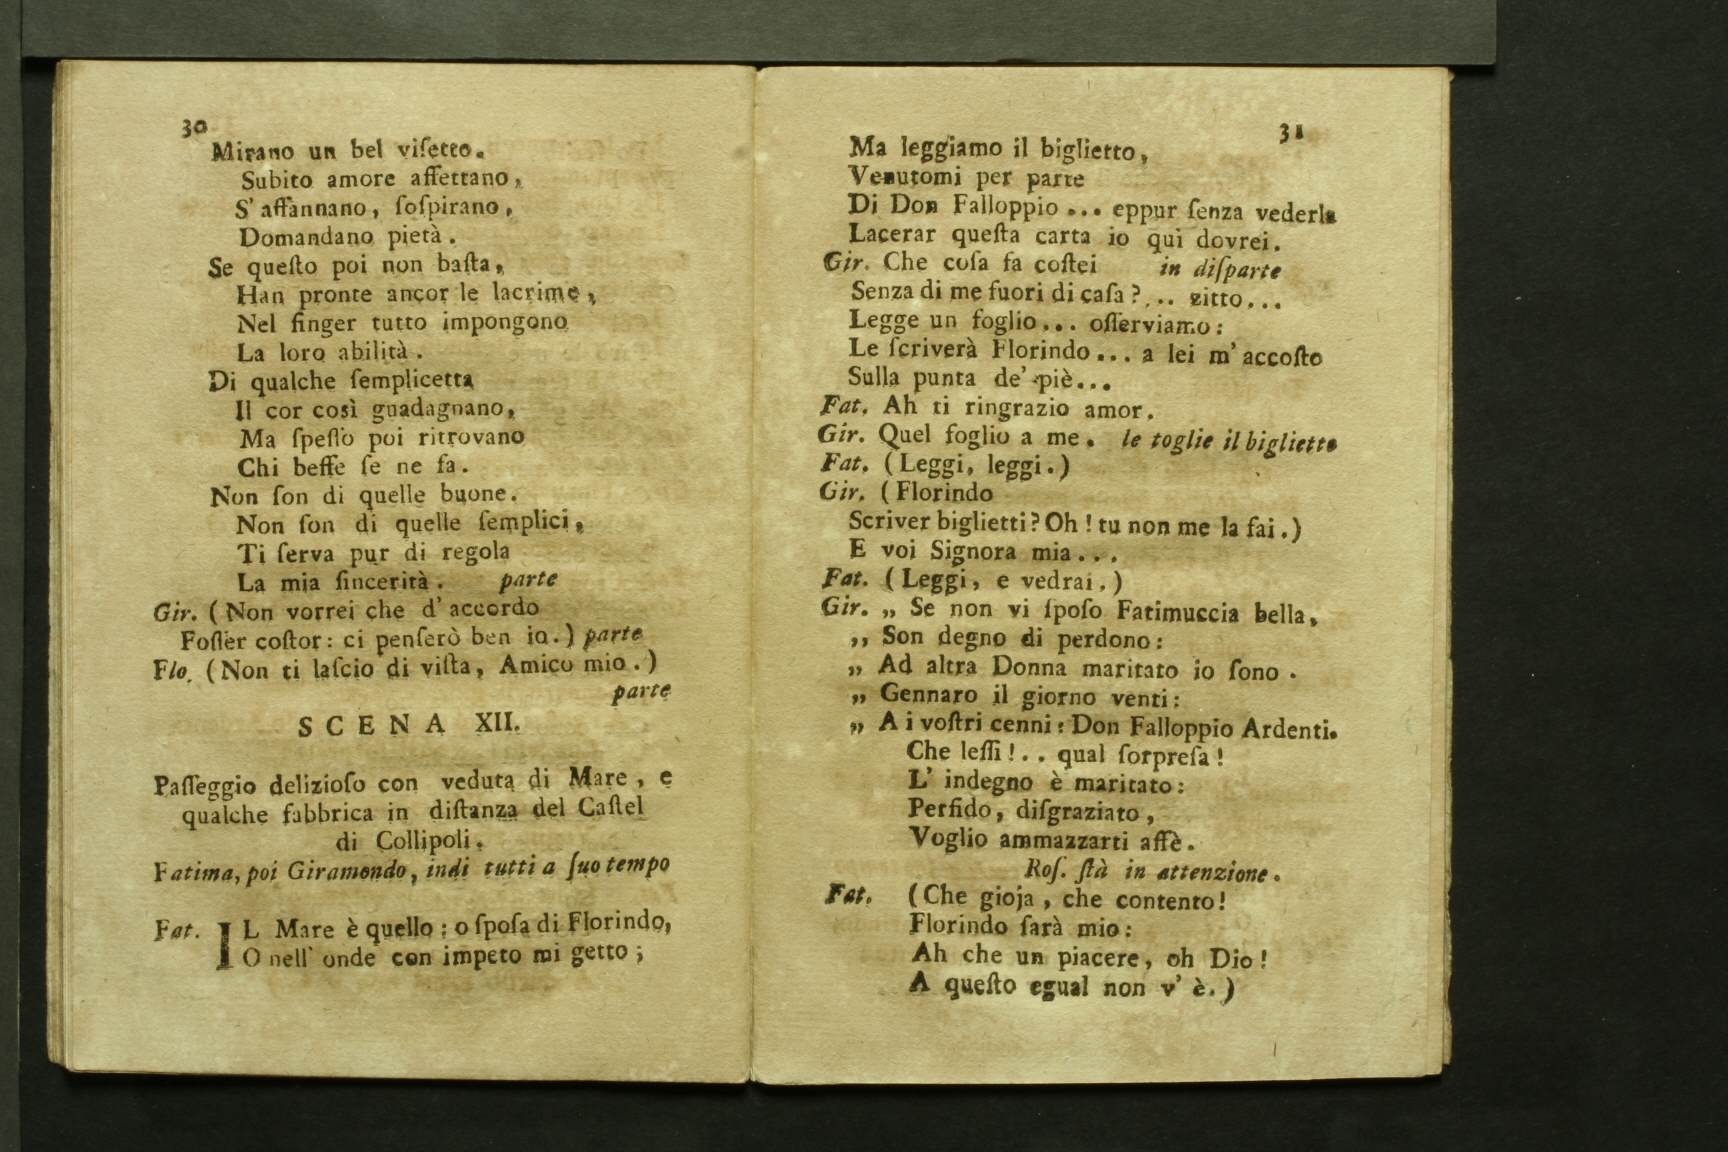 30
Mirano un bel viſetto.
Subito amore affettano,
S' affannano, ſoſpirano,
Domandano pietà.
Se queſto poi non baſta,
Han pronte ancor le lacrime,
Nel finger tutto impongono
La loro abilità.
Di qualche ſemplicetta
Il cor così guadagnano,
Ma ſpeſſo poi ritrovano
Chi beffe ſe ne fa.
Non ſon di quelle buone.
Non ſon di quelle ſemplici,
Ti ſerva pur di regola
La mia ſincerità. parte
Gir. (Non vorrei che d' accordo
Foſſer coſtor: ci penſerò ben io.) parte
Flo. (Non ti laſcio di viſta, Amico mio.)
parte
SCENA XII.
Paſſeggio delizioſo con veduta di Mare, e
qualche fabbrica in diſtanza del Caſtel
di Collipoli.
Fatima, poi Giramondo, indi tutti a ſuo tempo
Fat. IL Mare è quello: o ſpoſa di Florindo,
O nell' onde con impeto mi getto;
31
Ma leggiamo il biglietto,
Venutomi per parte
Di Don Falloppio... eppur ſenza vederla
Lacerar queſta carta io qui dovrei.
Gir. Che coſa fa coſtei in diſparte
Senza di me fuori di caſa?... zitto...
Legge un foglio... oſſerviamo:
Le ſcriverà Florindo... a lei m' accoſto
Sulla punta de' piè...
Fat. Ah ti ringrazio amor.
Gir. Quel foglio a me. le toglie il biglietto
Fat. (Leggi, leggi.)
Gir. (Florindo
Scriver biglietti? Oh! tu non me la fai.)
E voi Signora mia...
Fat. (Leggi, e vedrai.)
Gir. „ Se non vi ſpoſo Fatimuccia bella,
„ Son degno di perdono:
„ Ad altra Donna maritato io ſono.
„ Gennaro il giorno venti:
„ A i voſtri cenni: Don Falloppio Ardenti.
Che leſſi!.. qual ſorpreſa!
L' indegno è maritato:
Perfido, diſgraziato,
Voglio ammazzarti affè.
Roſ. ſtà in attenzione.
Fat. (Che gioja, che contento!
Florindo ſarà mio:
Ah che un piacere, oh Dio!
A queſto egual non v' è.)